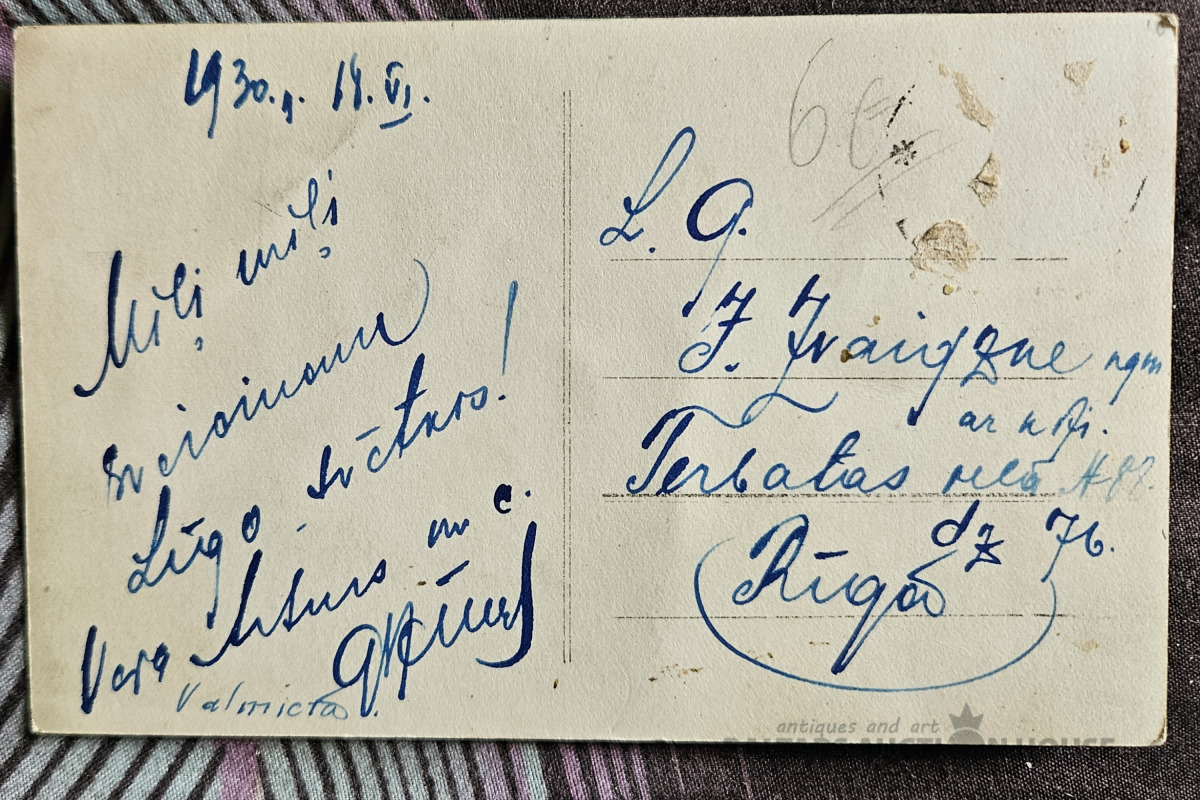 1930. g. 14. VI.
Mīļi mīļi
sveicinam
Līgo svētkos!
Vera Arturs un c.
Valmierā.
6 €
L. G.
J. Zvaigzne
ar
Terbatas ielā
dz 76.
Rīgā
antiques and art